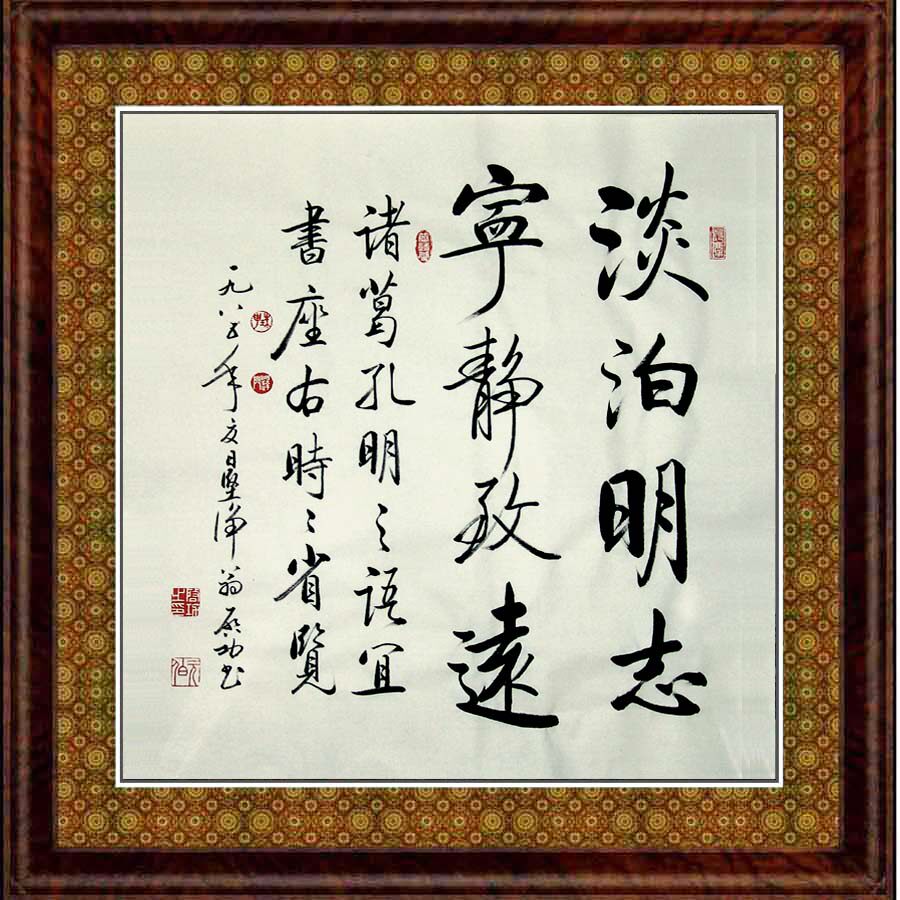 淡泊明志
寧静致遠
諸葛孔明之語宜
書座右時〻省覽
一九八五年夏日堅浄翁啟功書